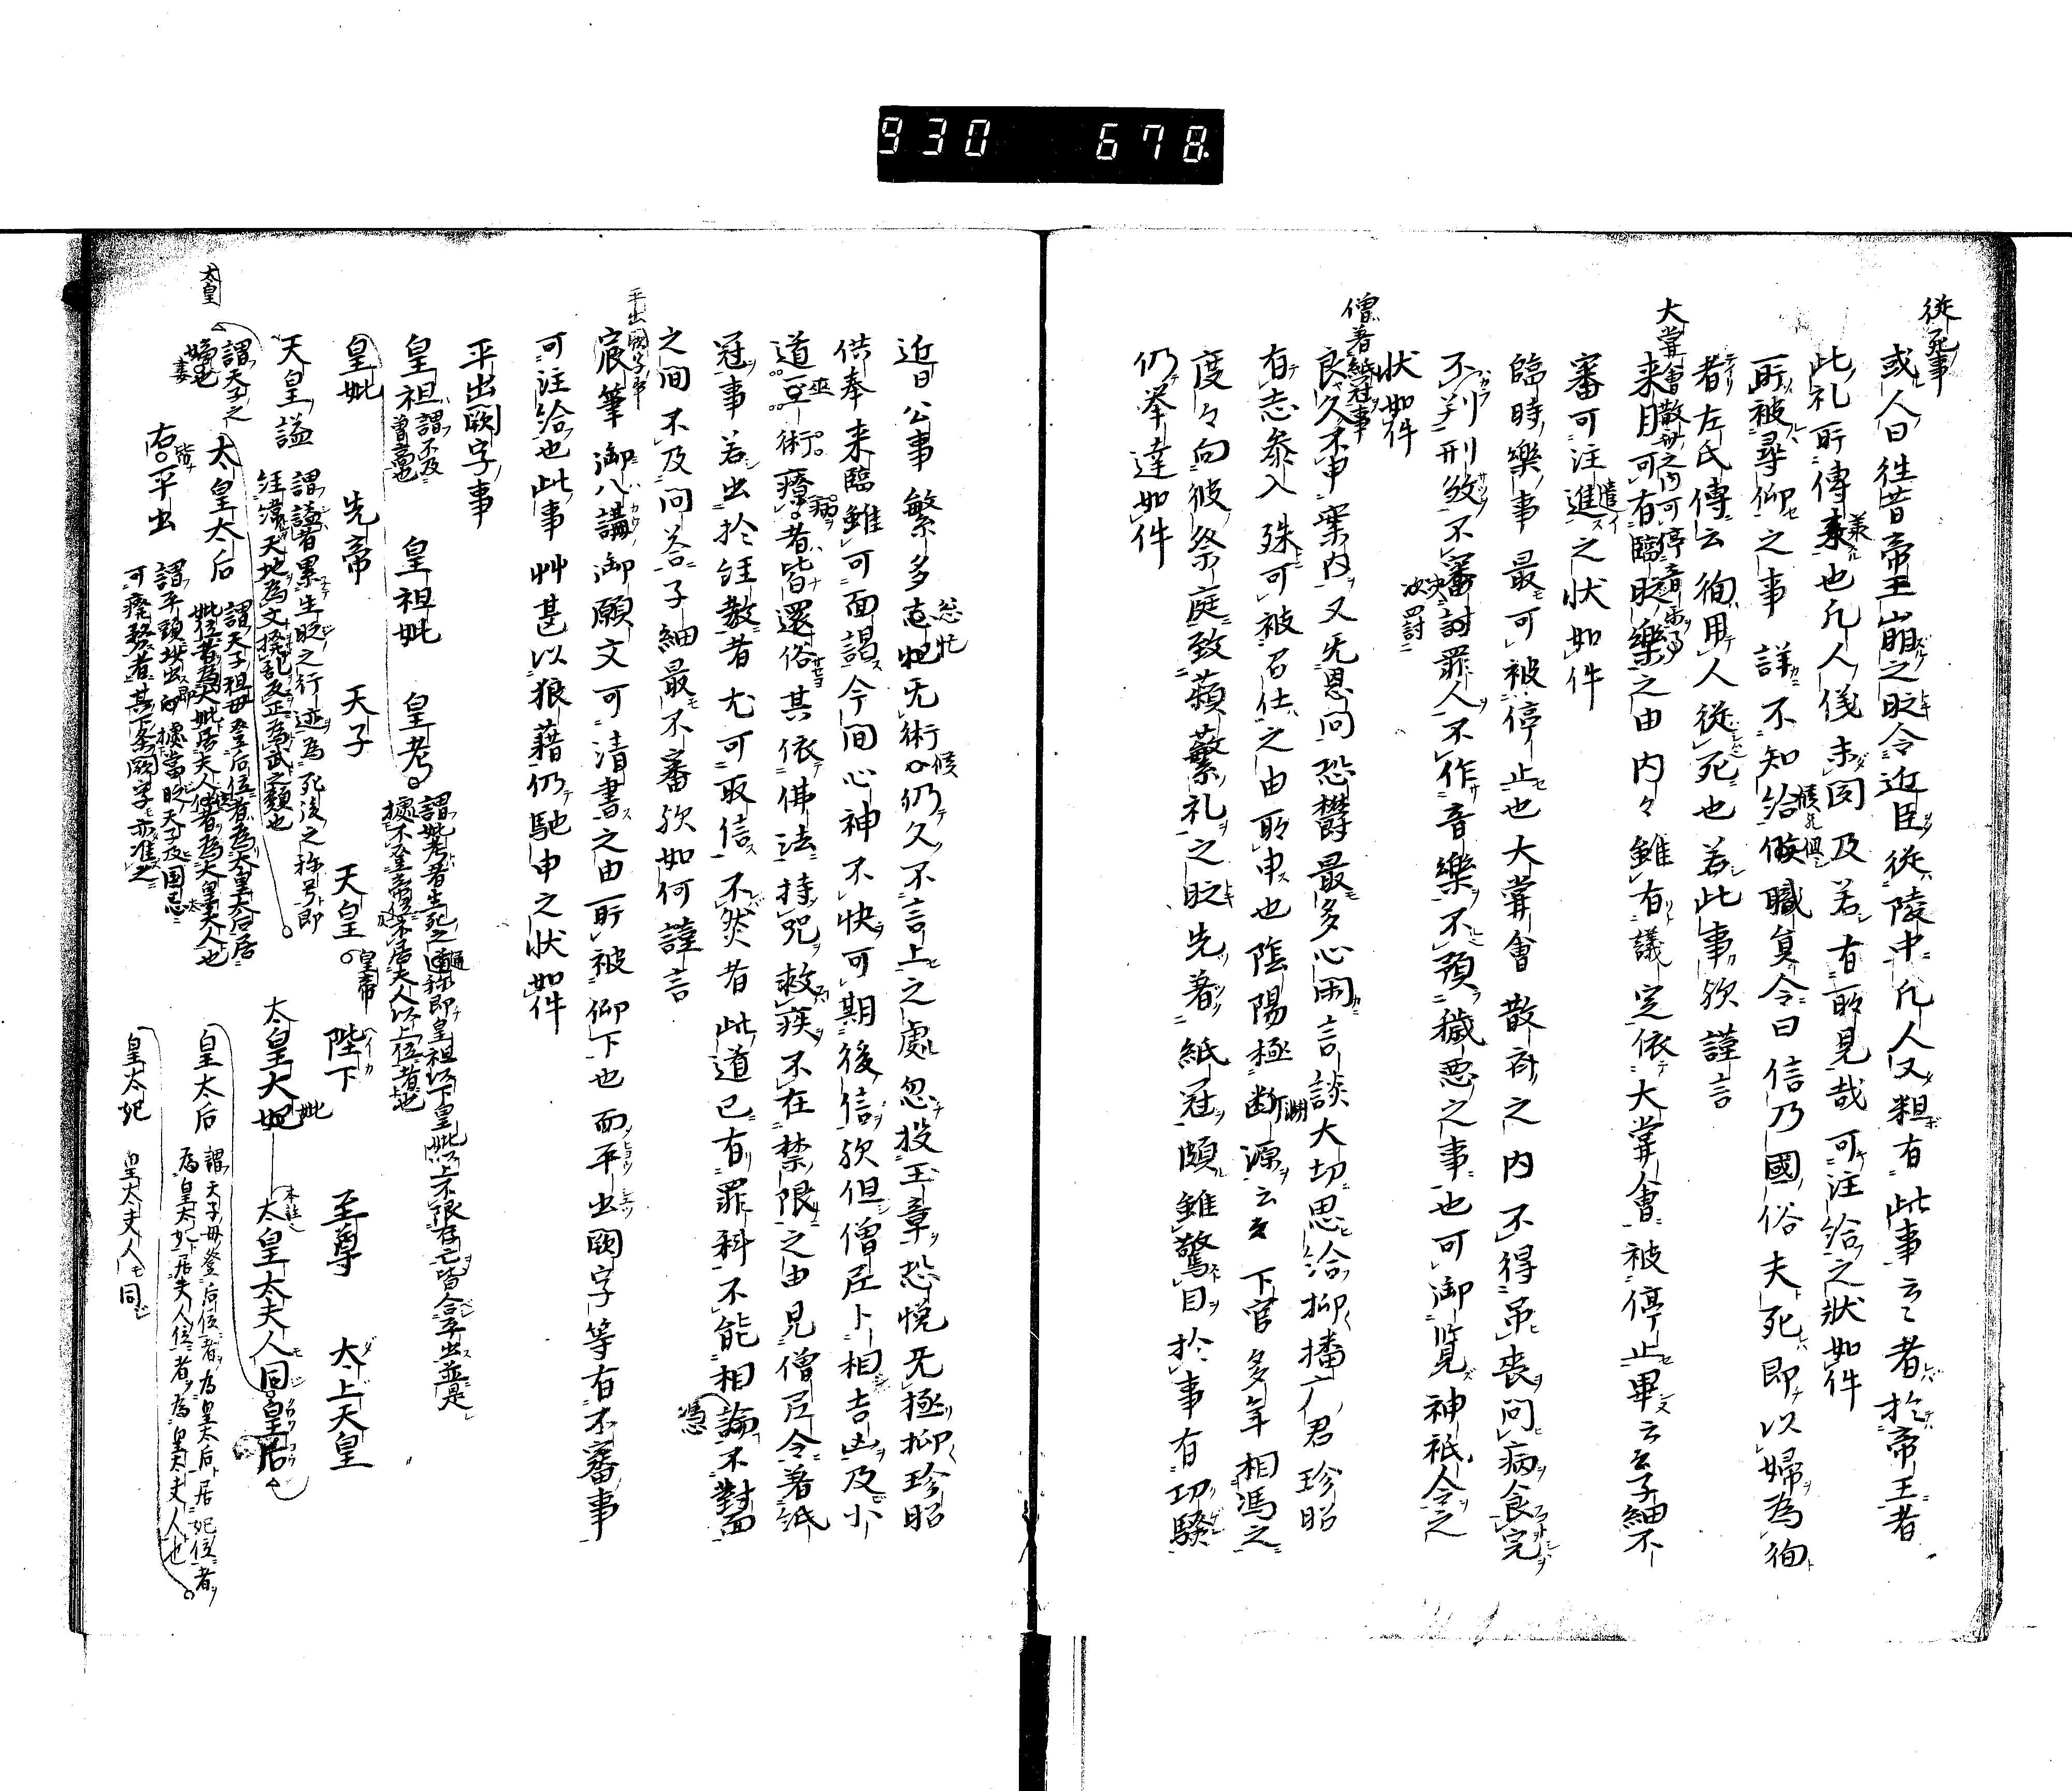 930 678
従死事
或人曰往昔帝王崩之時令近臣從陵中凡人又粗有此事云々者於帝王者
此礼所傳来也凡人儀未図及若有所見哉可注給之状如件
所被尋仰之事詳不知給候職員令曰信乃國俗夫死即以婦為徇
者左氏傳云徇用人従死也若此事欤謹言
大甞會散斎之内可停音樂事
来月可有臨時樂之由内々雖有議定依大甞會被停止畢云々子細不
審可注進之状如件
臨時樂事最可被停止也大甞會散斎之内不得弔喪問病食完
不判刑煞不審討罪人不作音樂不預穢悪之事也可御覧神祇令之
状如件
僧着紙冠事
良久不申案内又无恩問恐欝最多心閑言談大切思給抑播广君珍昭
有志参入殊可被召仕之由所申也陰陽極断源云々下官多年相馮之
度々向彼祭庭致蘋蘩礼之時先着紙冠頗雖驚目於事有切驗
仍挙達如件
近日公事繁多忩忙无術候仍久不言上之處忽投玉章恐悦无極抑珍昭
供奉来臨雖可面謁今間心神不快可期後信欤但僧尼卜相吉凶及小
道巫術療病者皆還俗其依佛法持咒救疾不在禁限之由見僧尼令着紙
冠事若出於經教者尤可取信不然者此道已有罪科不能相論不對面
之間不及問答子細最不審欤如何謹言
平出闕字事
宸筆御八講御願文可清書之由所被仰下也而平出闕字等有不審事
可注給也此事艸甚以狼藉仍馳申之状如件
平出闕字事
皇祖 謂不及曽高也 皇祖妣 皇考 謂妣考者生死之通称即皇祖以下皇妣以上不限存亡皆合平出並是據不登帝位不居夫人以上位者也
皇妣 先帝 天子 天皇 皇帝 陛下 至尊 太上天皇
天皇謚 謂謚者累生時之行迹為死後之称号即經緯天地為文撥乱反正為武之類也 太皇大妃 太皇太夫人同 皇后
太皇
謂天子之嫡妻也 太皇太后 謂天子祖母登后位者為太皇太后居妣位者為大妣居夫人位者為太皇夫人也 皇太后 謂天子母登后位者為皇太后居妃位者為皇太妃居夫人位者為皇太夫人也
右皆平出 謂平頭抄出即據當時天子及国忌可癈務者其下条闕字亦准之 皇太妃 皇太夫人同